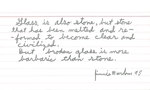 Glass is also stone, but stone
that has been melted and re-
formed to become clear and
civilized.
But broken glass is more
barbaric than stone.